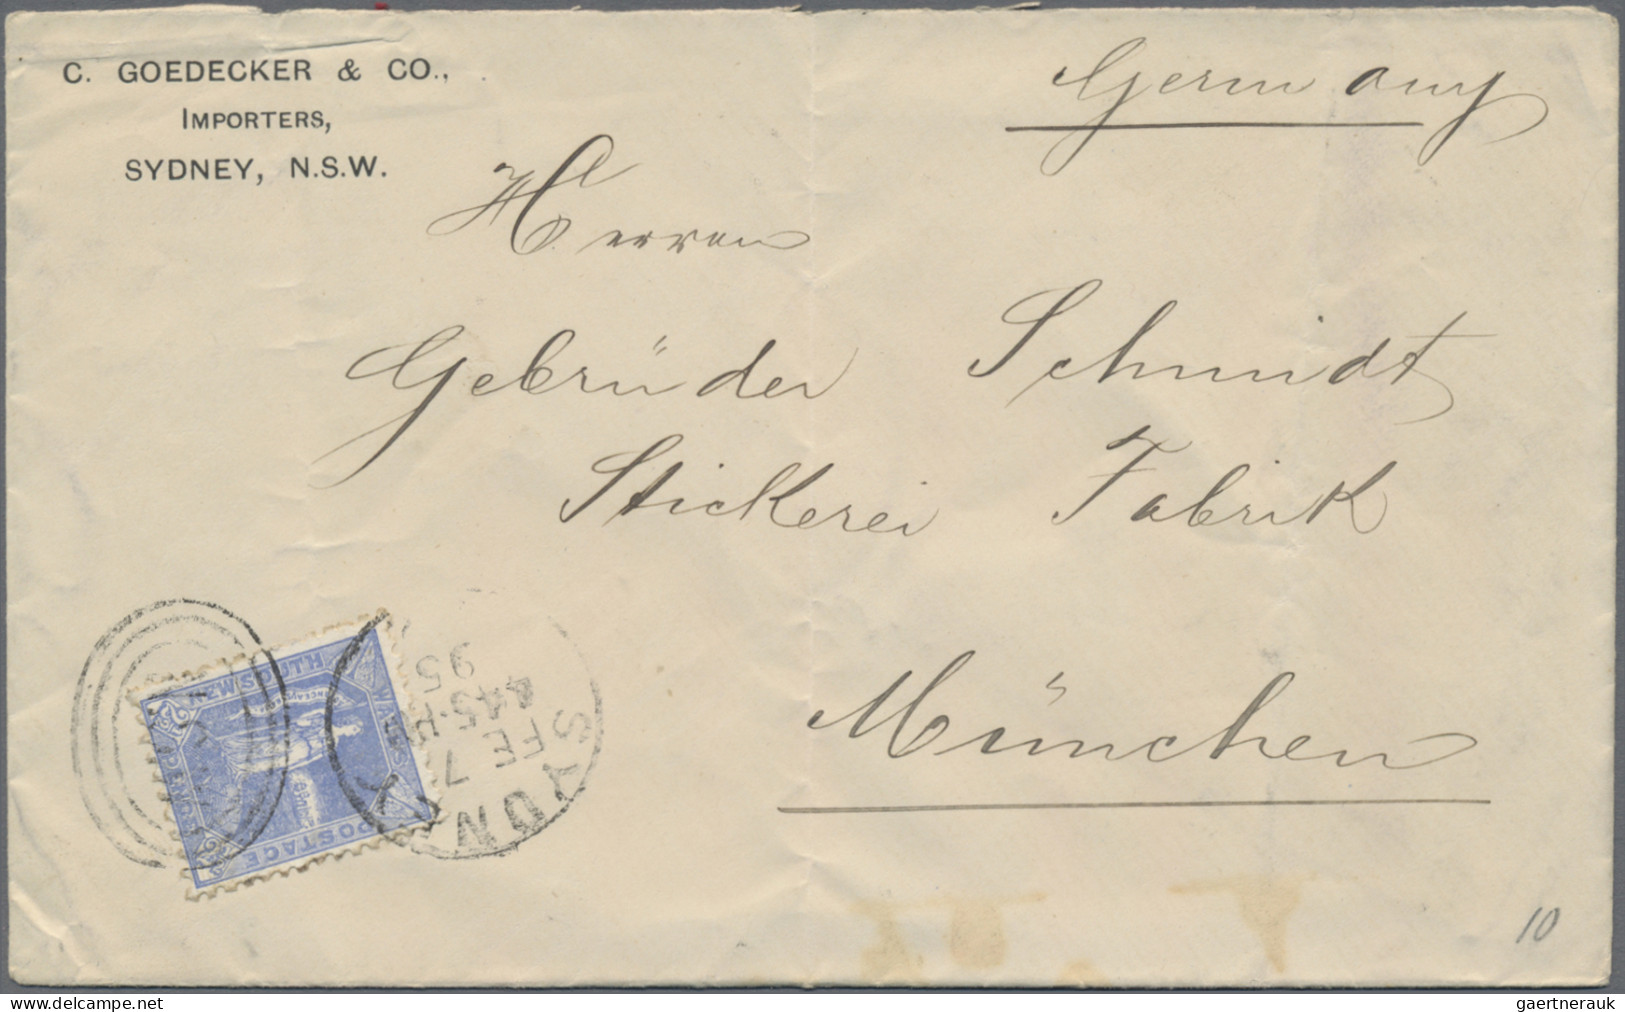 C. GOEDECKER & CO.,
IMPORTERS,
SYDNEY, N.S.W.
Germany
Herren
Gebrüder Schmidt
Stickerei Fabrik
München
NEW SOUTH WALES
POSTAGE
SYDNEY
FE 7
4 45
95
10
delcampe.net
gaertnerauk